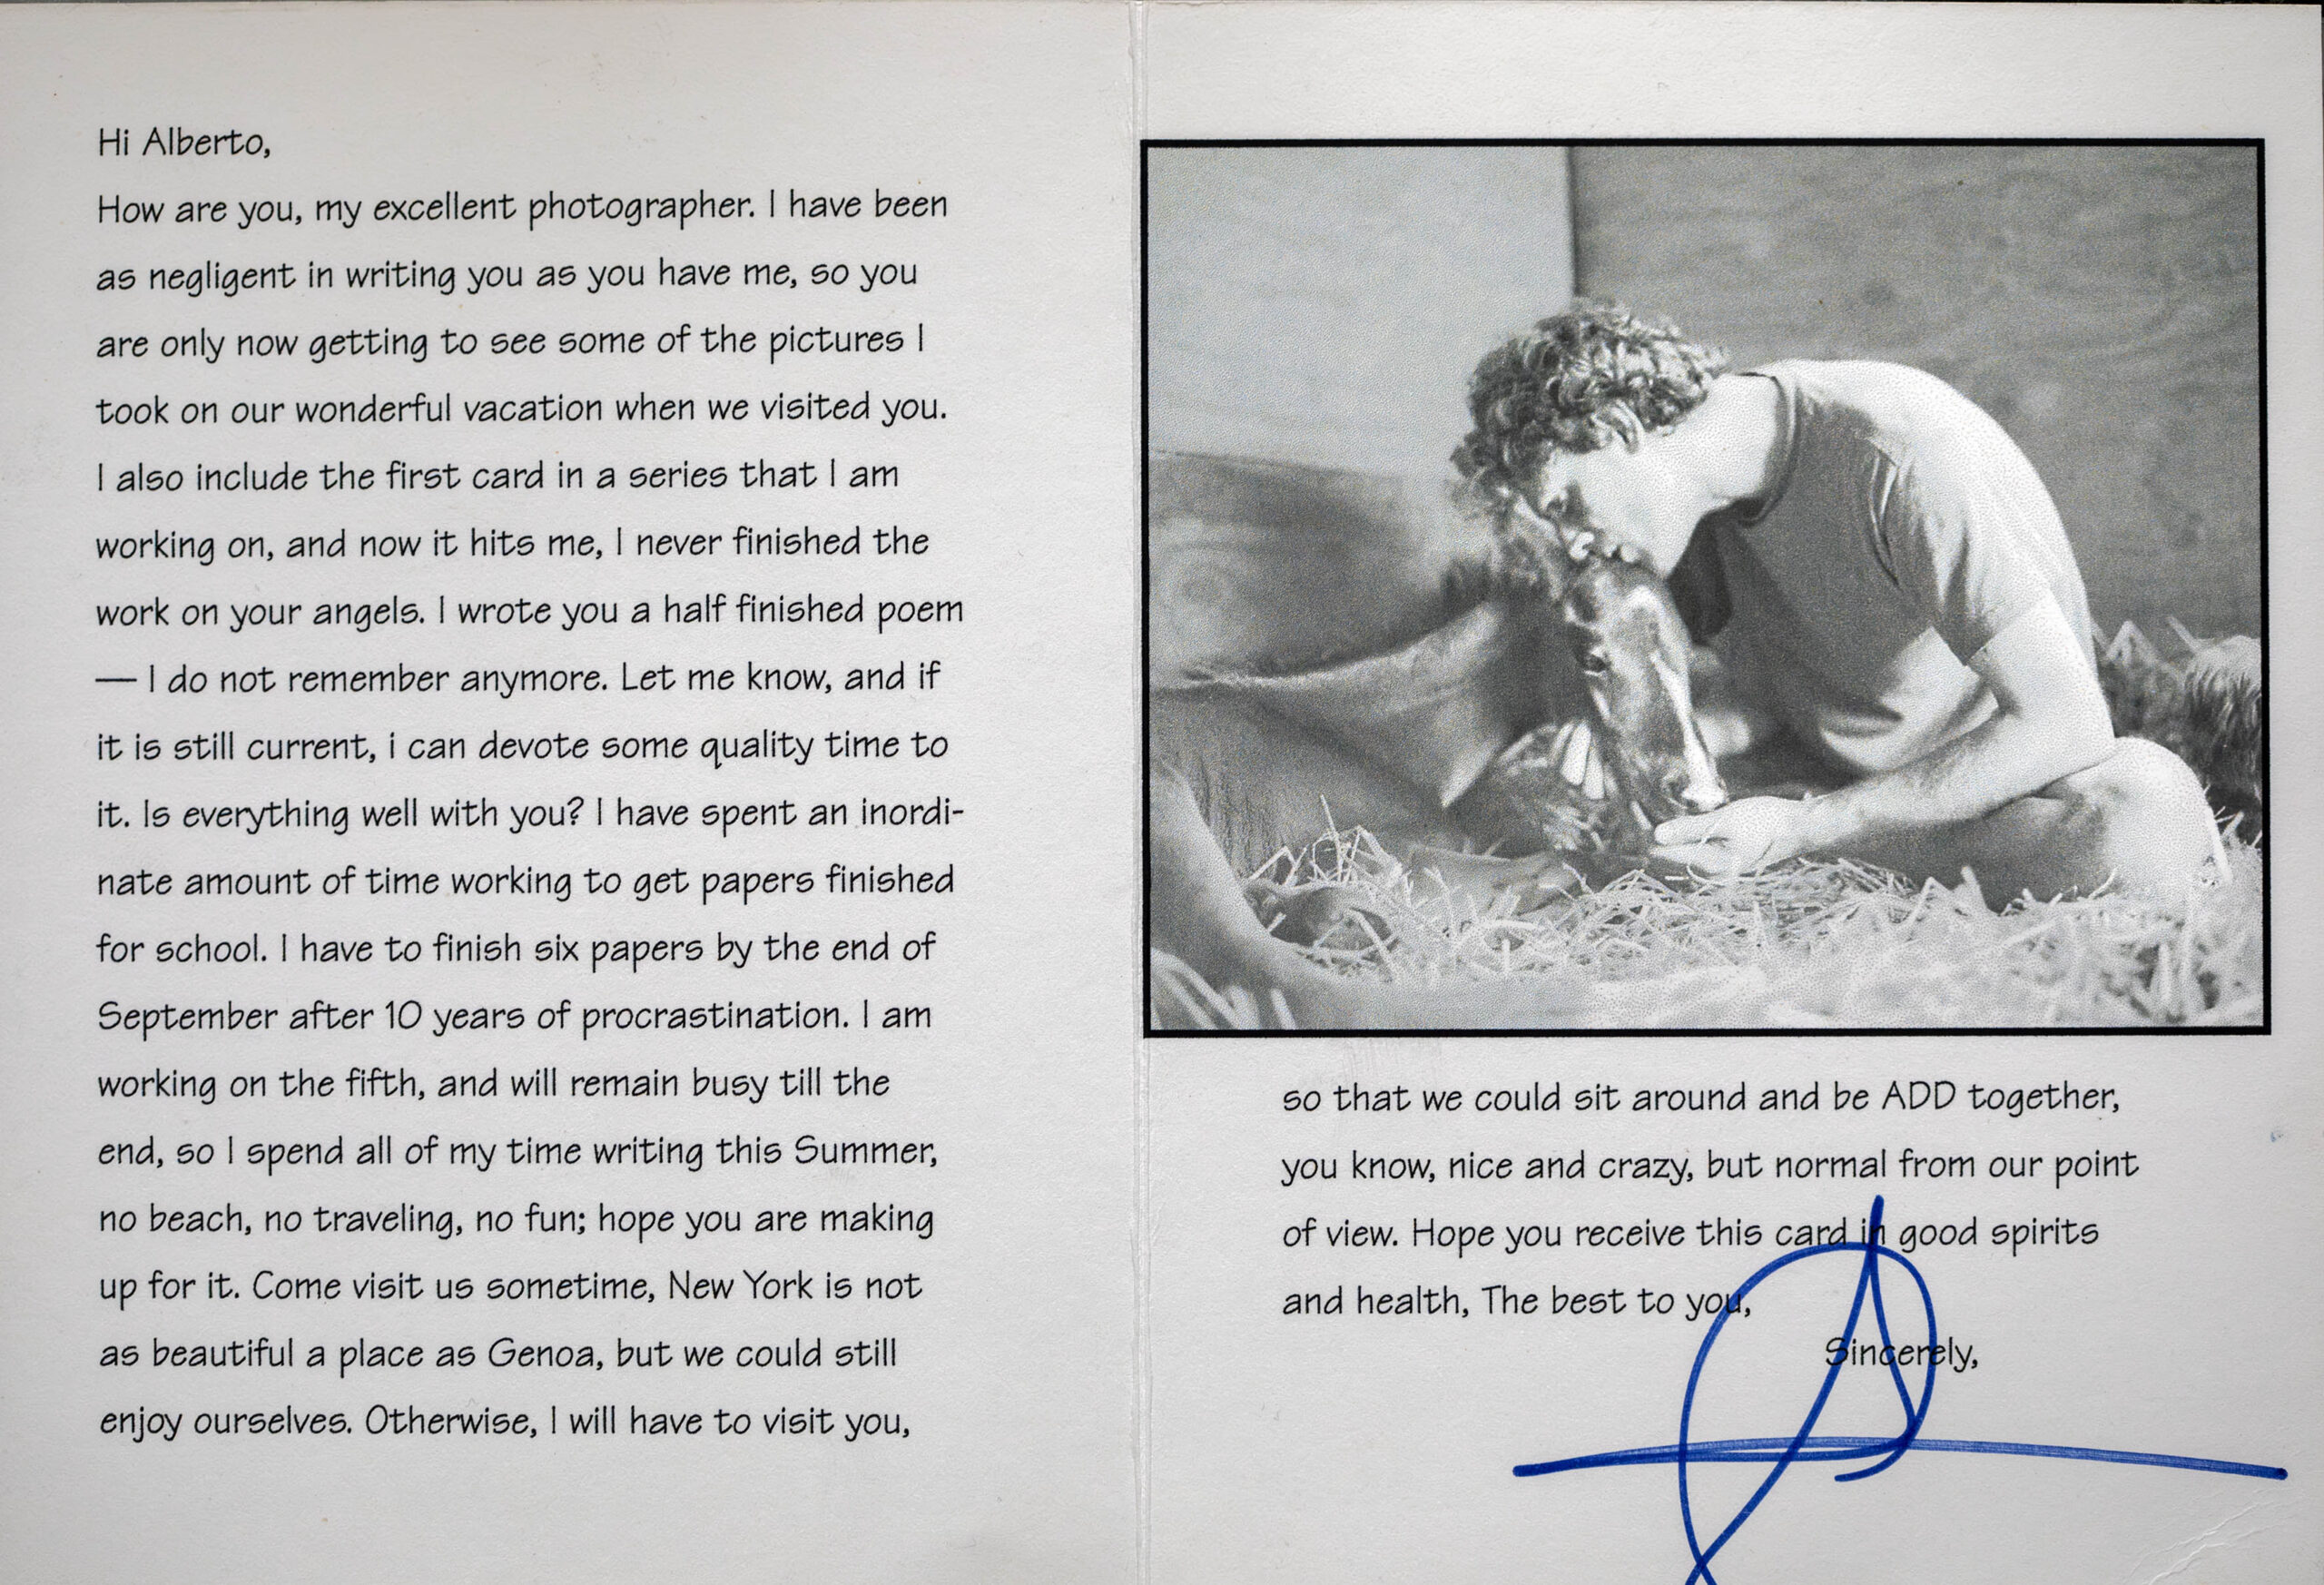 Hi Alberto,
How are you, my excellent photographer. I have been
as negligent in writing you as you have me, so you
are only now getting to see some of the pictures I
took on our wonderful vacation when we visited you.
I also include the first card in a series that I am
working on, and now it hits me, I never finished the
work on your angels. I wrote you a half finished poem
— I do not remember anymore. Let me know, and if
it is still current, i can devote some quality time to
it. Is everything well with you? I have spent an inordi-
nate amount of time working to get papers finished
for school. I have to finish six papers by the end of
September after 10 years of procrastination. I am
working on the fifth, and will remain busy till the
end, so I spend all of my time writing this Summer,
no beach, no traveling, no fun; hope you are making
up for it. Come visit us sometime, New York is not
as beautiful a place as Genoa, but we could still
enjoy ourselves. Otherwise, I will have to visit you,
so that we could sit around and be ADD together,
you know, nice and crazy, but normal from our point
of view. Hope you receive this card in good spirits
and health, The best to you,
Sincerely,